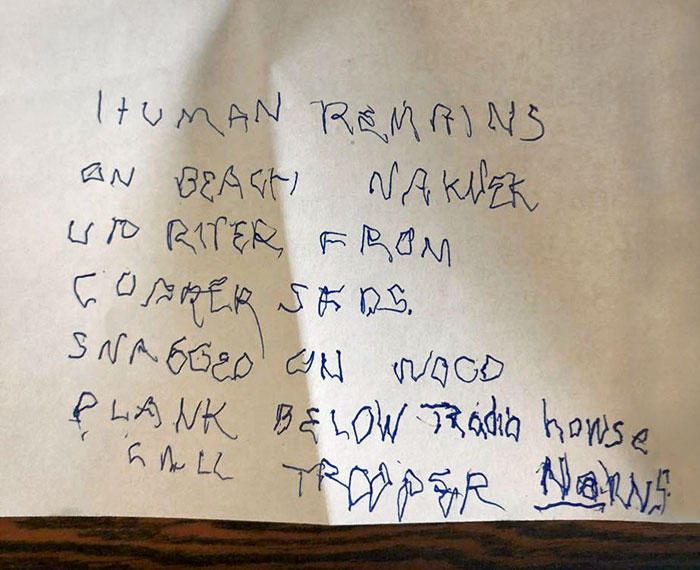 HUMAN REMAINS
ON BEACH NAKNEK
UP RIVER FROM
SEDS.
SNAGGED ON WOOD
PLANK BELOW Radio house
CALL TROOPER